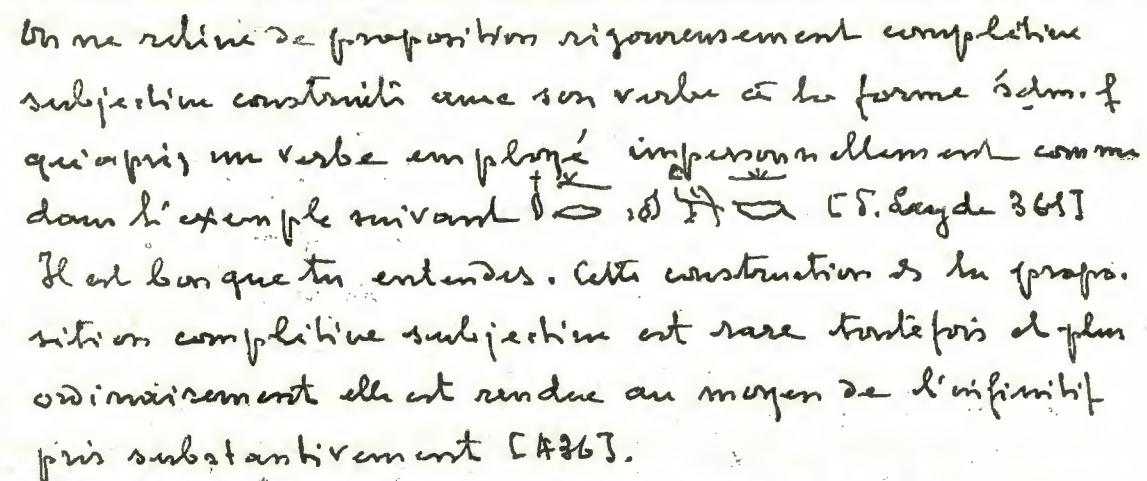 On ne relève de proposition rigoureusement complétive
subjective construite avec son verbe à la forme śdm.f
qu'après un verbe employé impersonnellement comme
dans l'exemple suivant [S. Leyde 365]
Il est bon que tu entendes. Cette construction de la propo-
sition complétive subjective est rare toutefois et plus
ordinairement elle est rendue au moyen de l'infinitif
pris substantivement [436].